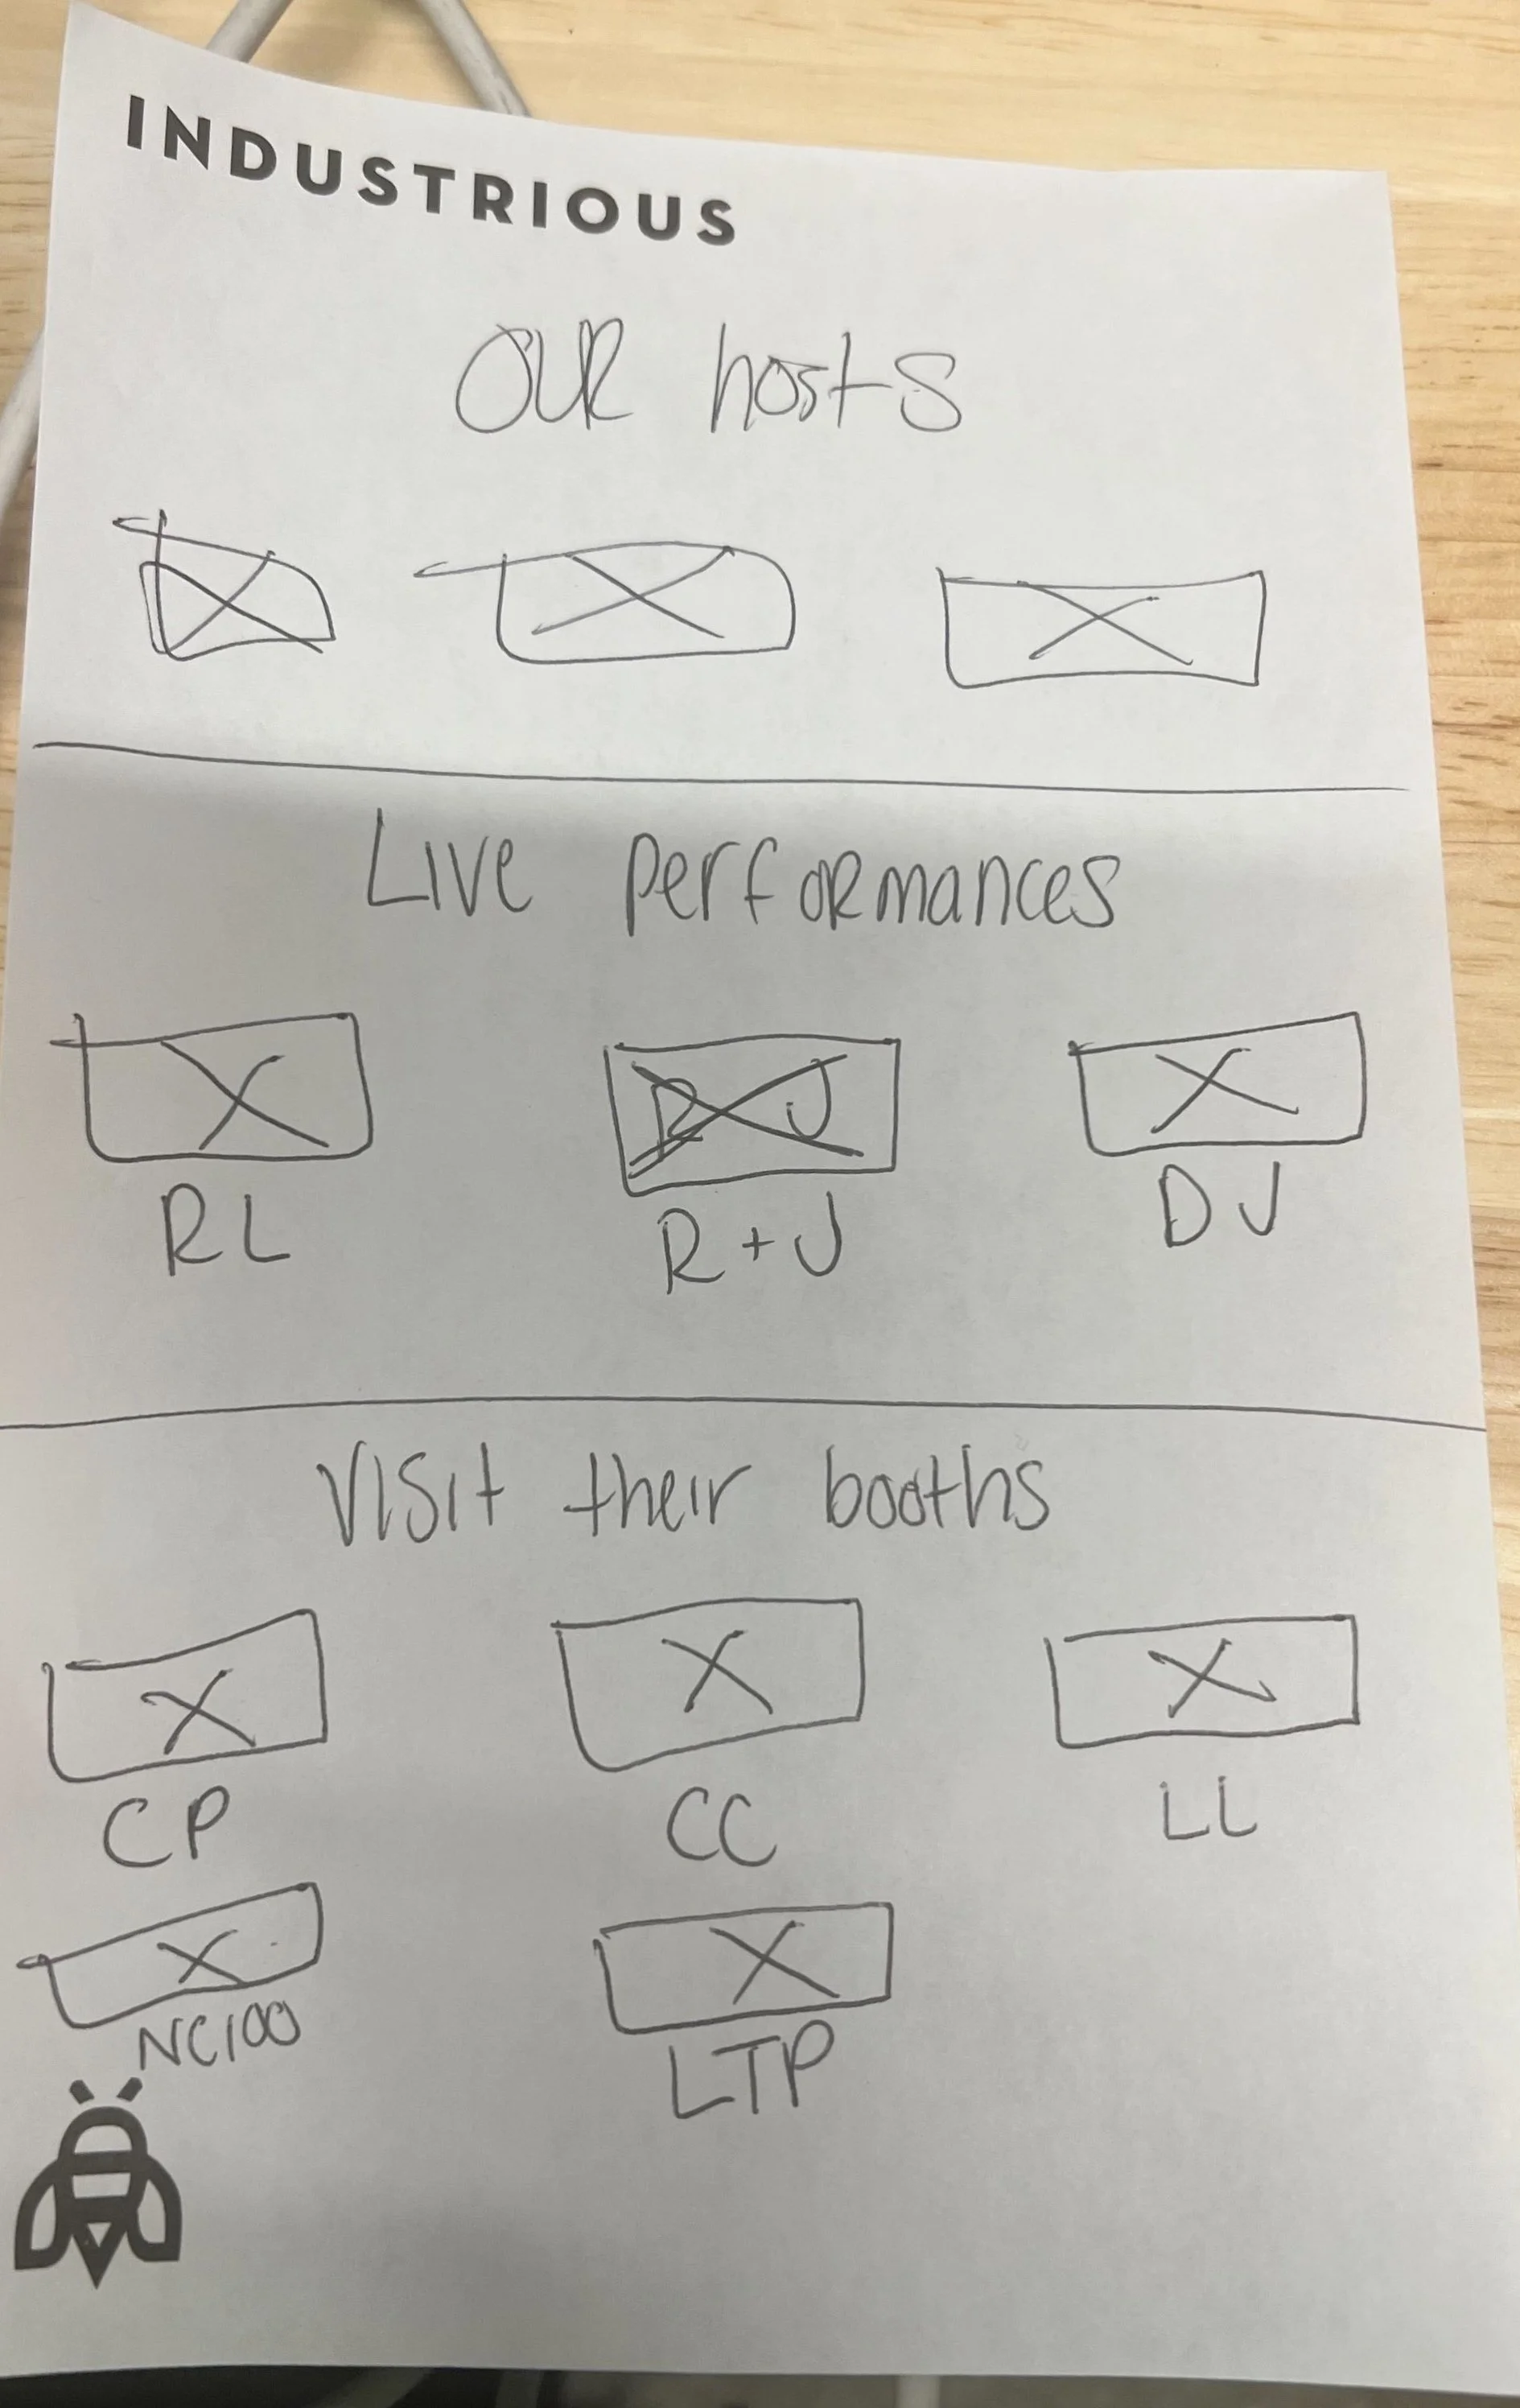 INDUSTRIOUS
OUR hosts
Live performances
R J
RL R + J DJ
Visit their booths
CP CC LL
NC100 LTP